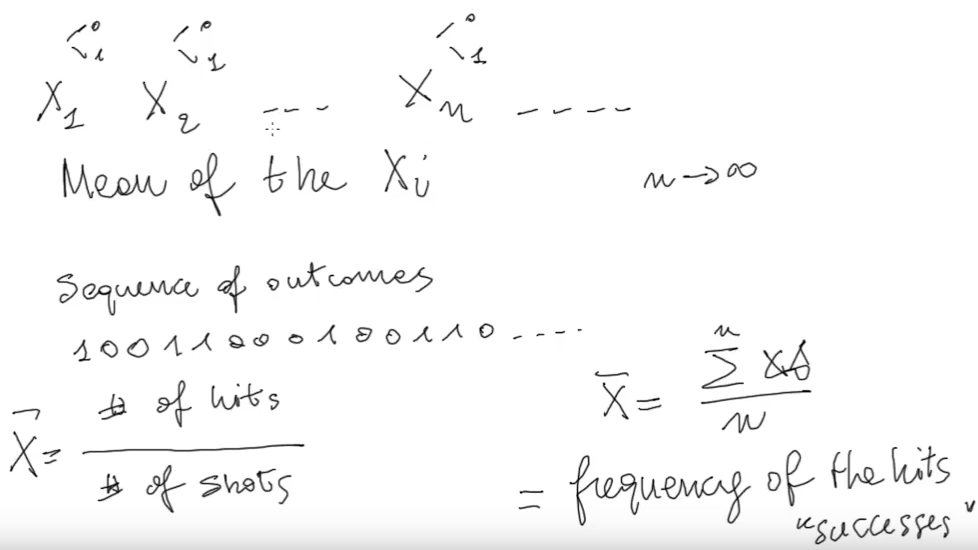 0 0 0
< 1 < 1 < 1
X₁ X₂ --- Xₙ ----
Mean of the Xᵢ n→∞
Sequence of outcomes
1001100010 0110 ....
X̄ = # of hits / # of shots
X̄ = Σⁿ / n
= frequency of the hits
"successes"